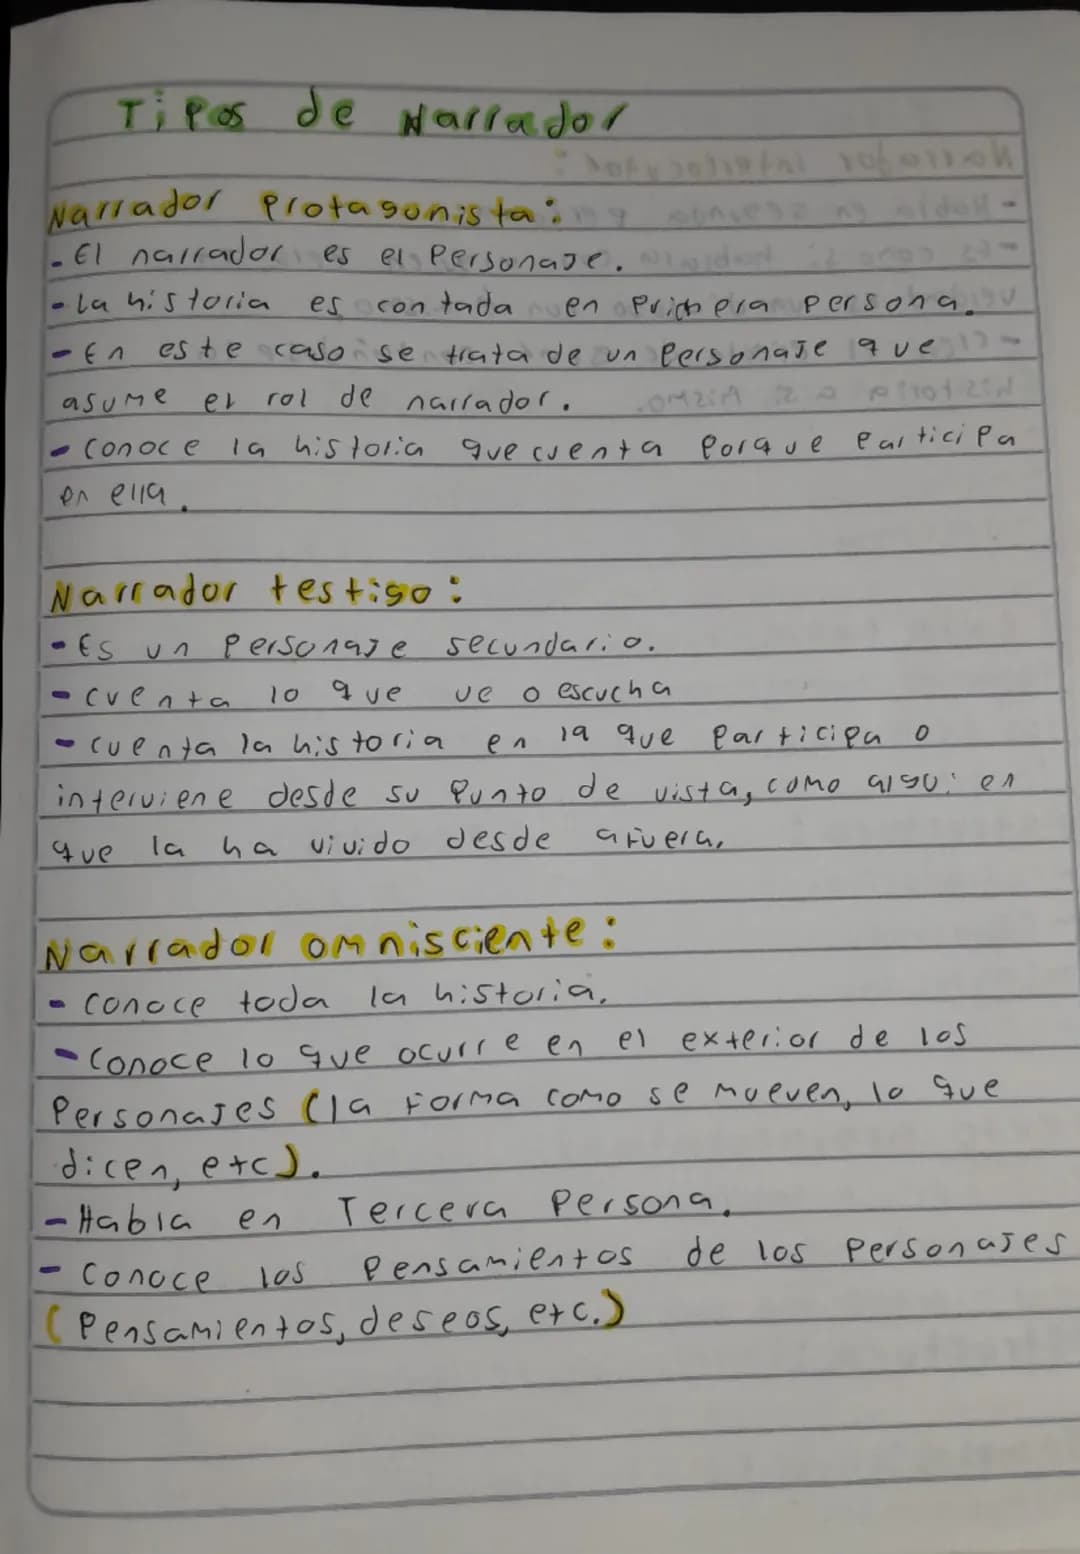 Tipos de Narrador
Narrador Protagonista:
- El narrador es el Personaje.
- La historia es contada en Primera persona.
- En este caso se trata de un Personaje que
asume el rol de narrador.
- conoce la historia que cuenta Porque Participa
en ella.
Narrador testigo:
- Es un Personaje secundario.
- cuenta lo que ve o escucha
- cuenta la historia en la que Participa o
interviene desde su Punto de vista, como alguien
que la ha vivido desde afuera.
Narrador omnisciente:
- conoce toda la historia.
- Conoce lo que ocurre en el exterior de los
Personajes (la Forma como se mueven, lo que
dicen, etc).
- Habla en Tercera Persona.
- Conoce los Pensamientos de los Personajes
(Pensamientos, deseos, etc.)